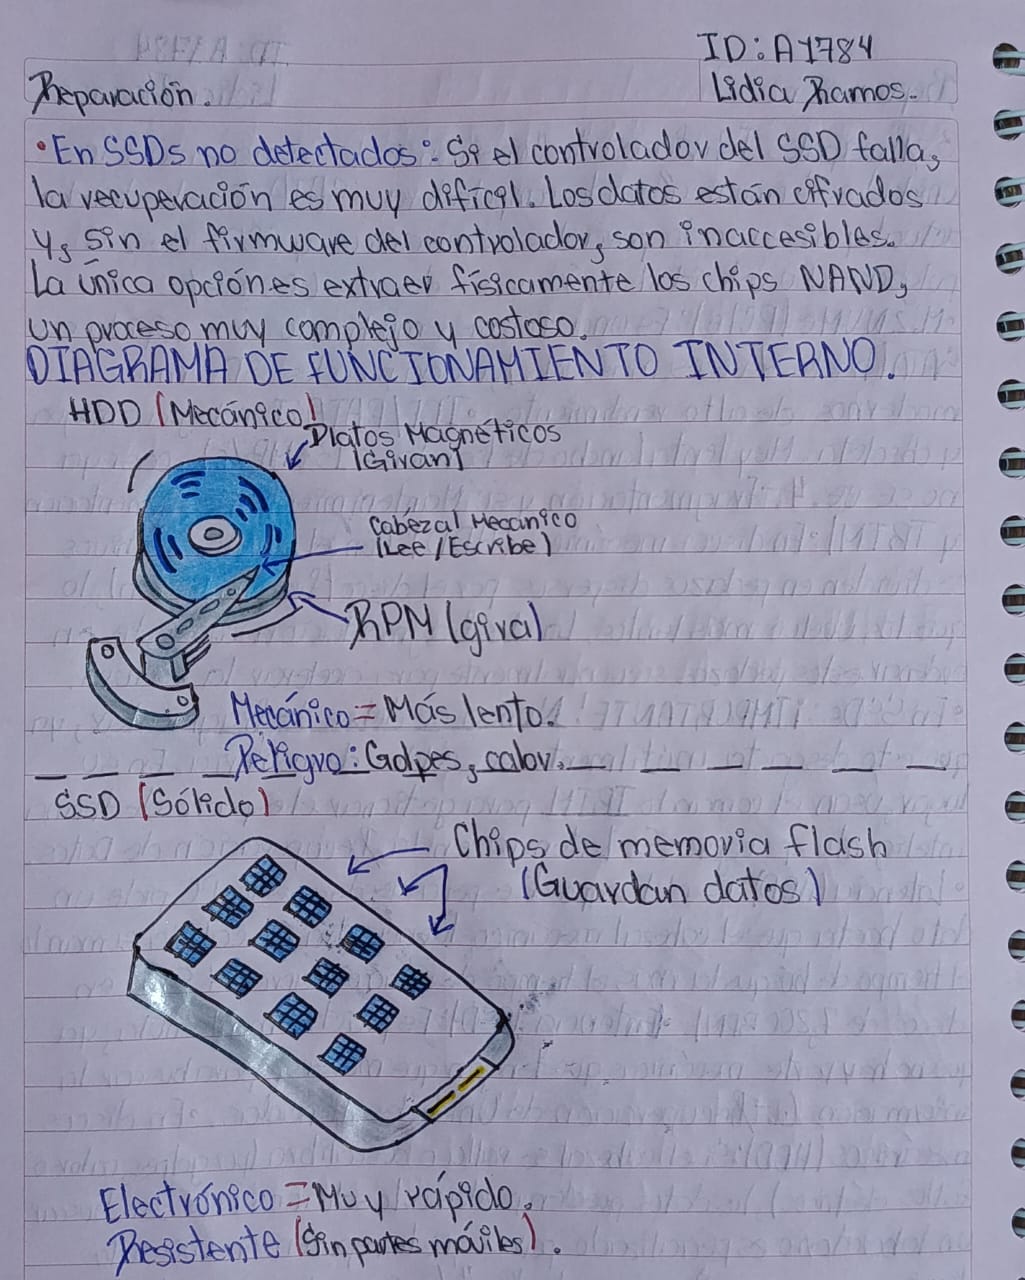 ID: A1784
Reparación.
Lidia Ramos.
• En SSDs no detectados: Si el controlador del SSD falla,
la recuperación es muy difícil. Los datos están cifrados
y, sin el firmware del controlador, son inaccesibles.
La única opción es extraer físicamente los chips NAND,
un proceso muy complejo y costoso.
DIAGRAMA DE FUNCIONAMIENTO INTERNO.
HDD (Mecánico)
Platos Magnéticos
(Giran)
Cabezal Mecánico
(Lee/Escribe)
RPM (gira)
Mecánico = Más lento.
Peligro: Golpes, calor.
SSD (Sólido)
Chips de memoria flash
(Guardan datos)
Electrónico = Muy rápido.
Resistente (Sin partes móviles).